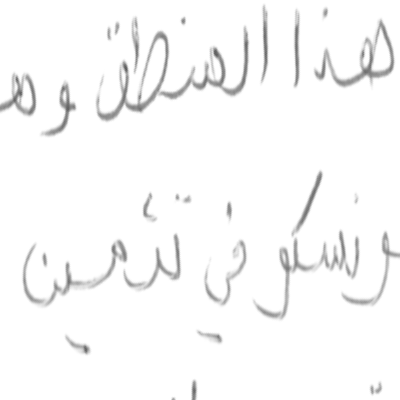 هذا المنطق وه
ونسكو في تدمين